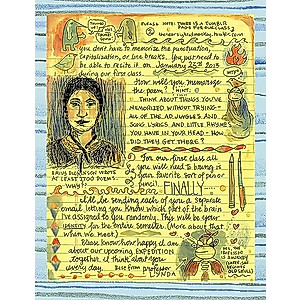 PLEASE NOTE: THERE IS A TUMBLR
PAGE FOR OUR CLASS
you don't have to memorize the punctuation,
capitalization, or line breaks. You just need to
be able to recite it on January 25th 2013
during our first class.
How will you memorize
the poem?
HINT:
THINK ABOUT THINGS YOU'VE
MEMORIZED WITHOUT TRYING -
ALL OF THE AD JINGLES AND
SONG LYRICS AND LITTLE RHYMES
YOU HAVE IN YOUR HEAD - HOW
DID THEY GET THERE?
EMILY DICKINSON WROTE
AT LEAST 1700 POEMS
WHY?
For our first class all
you will need to bring is
your favorite sort of pen or
pencil.
FINALLY
I'll be sending each of you a separate
email letting you know which part of the brain
I've assigned to you randomly. This will be your
IDENTITY for the entire semester. (More about that
when we meet.)
Please know how happy I am
about our upcoming EXPEDITION
together. I think about you
every day.
Best from professor
LYNDA